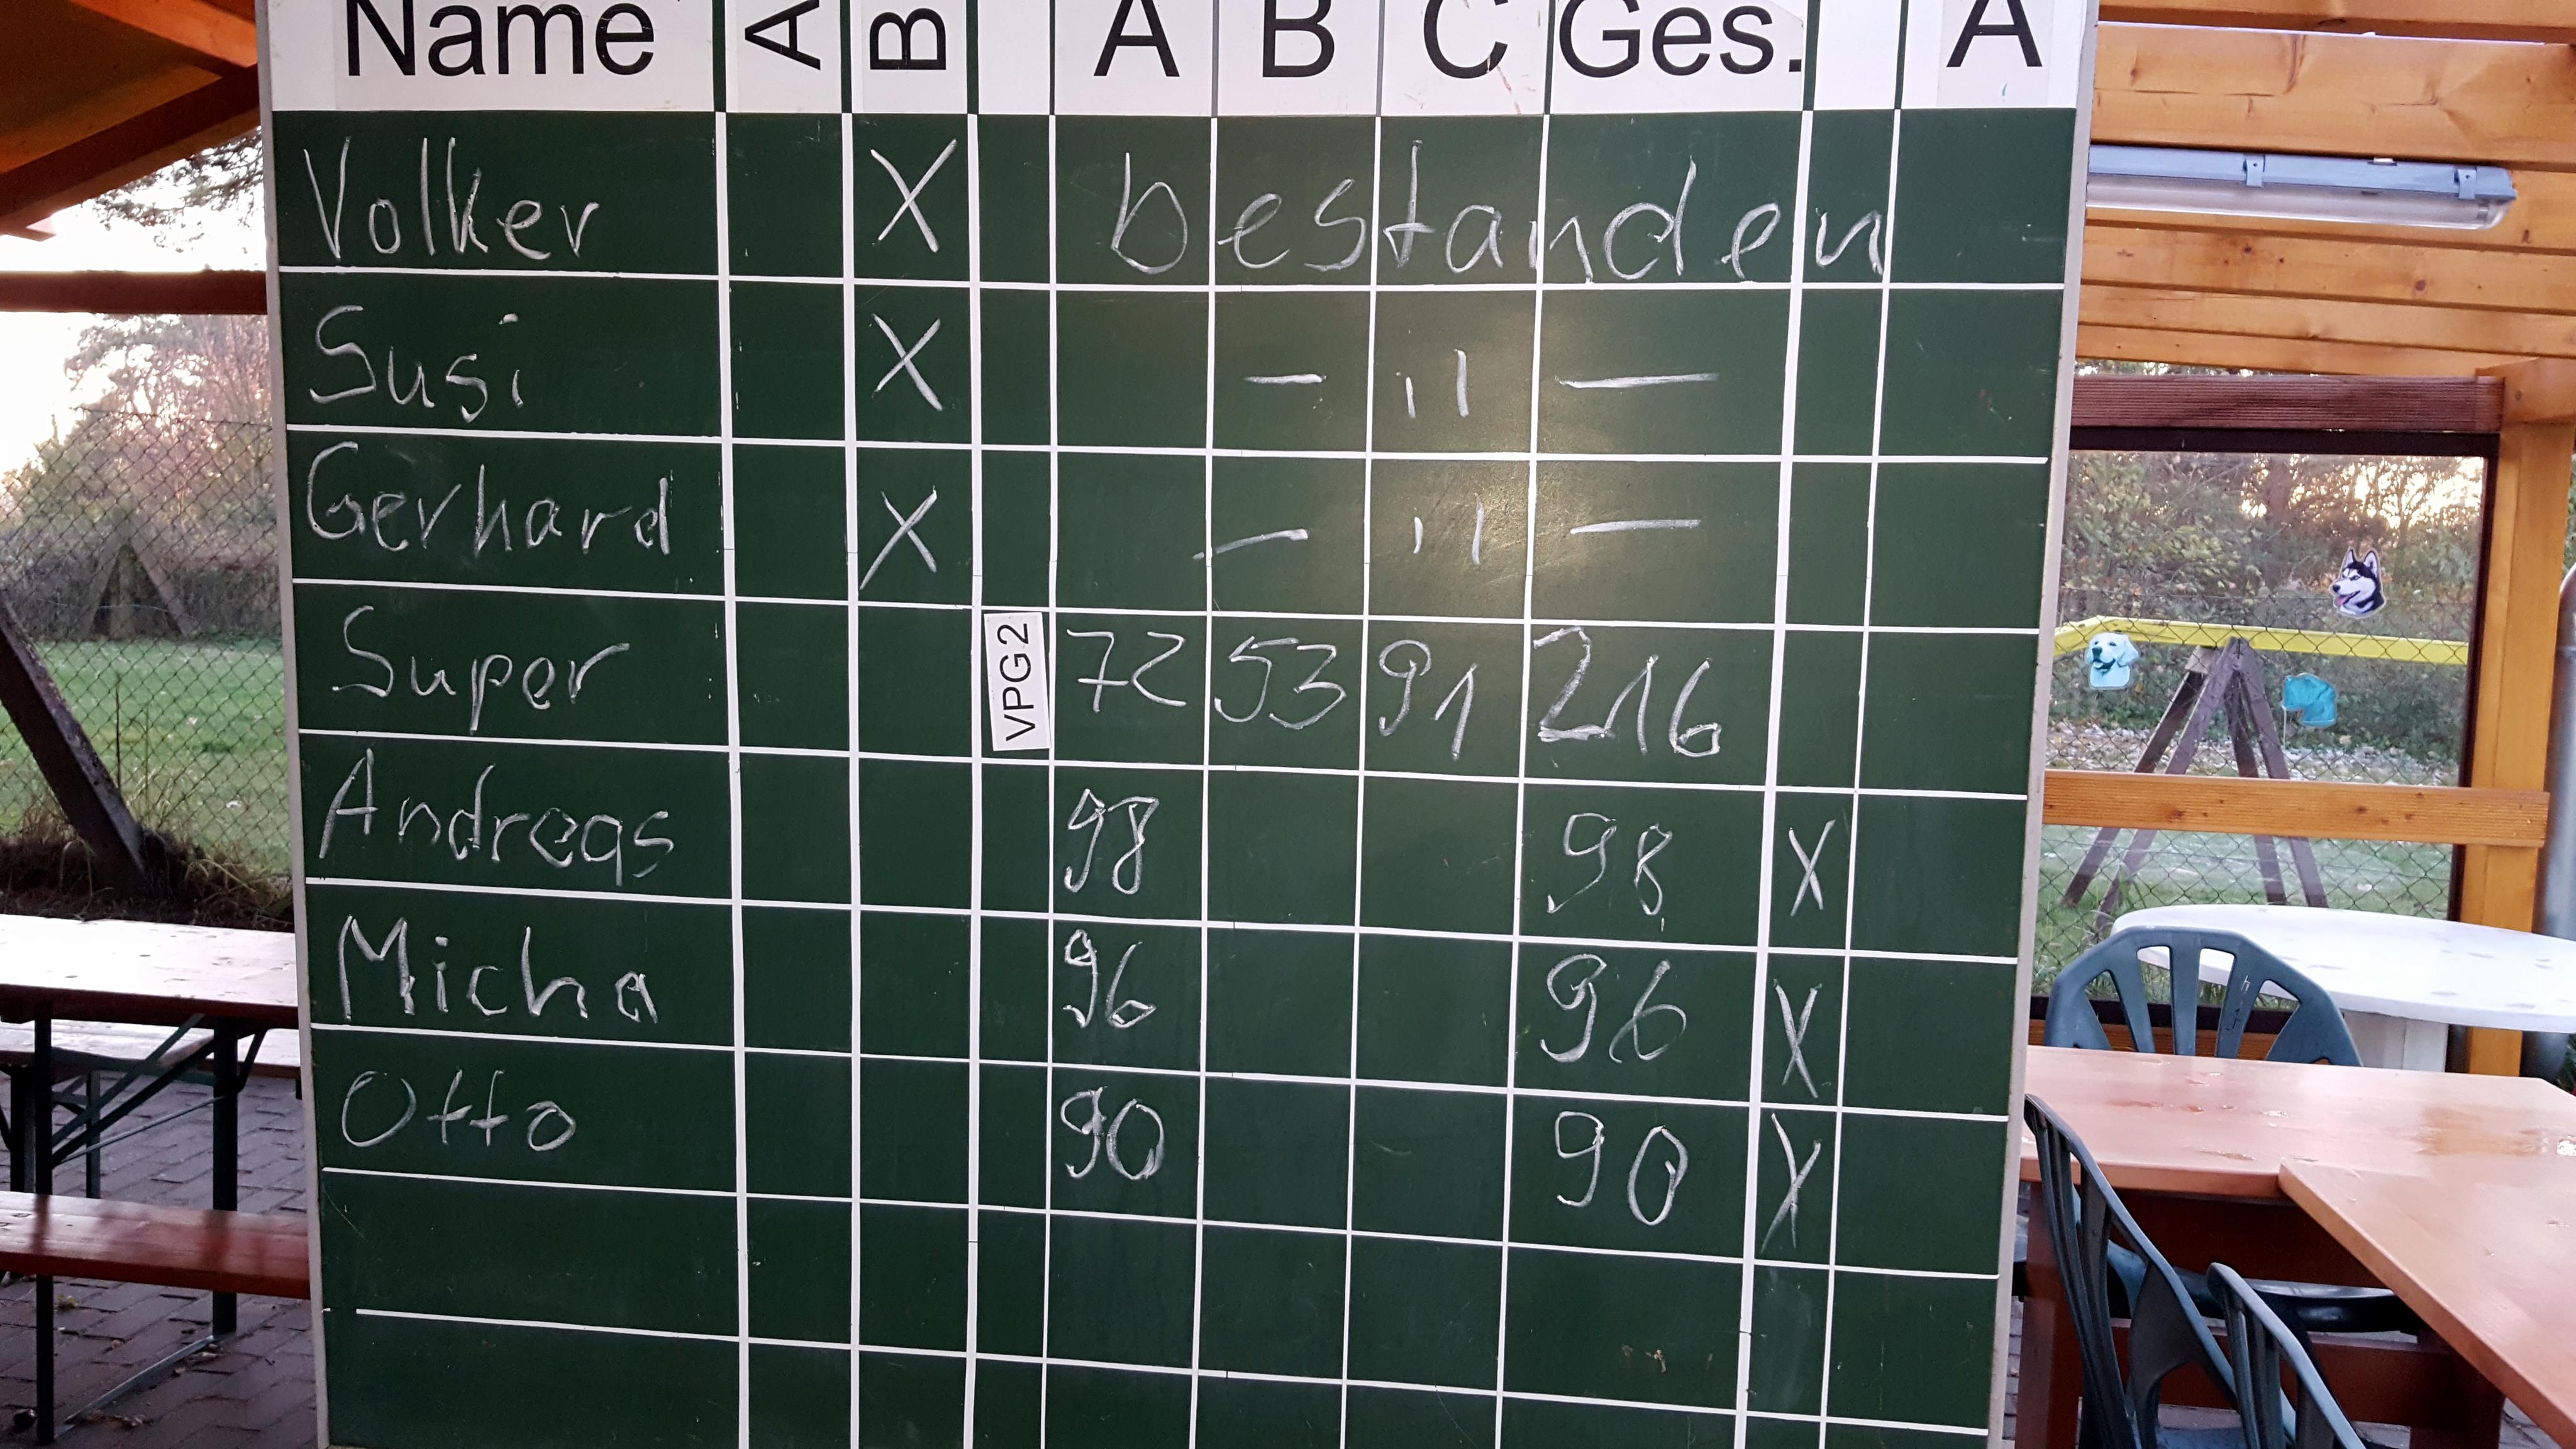 Name A B A B C Ges. A
Volker X bestanden
Susi X — " —
Gerhard X — " —
Super VPG2 72 53 91 216
Andreas 98 98 X
Micha 96 96 X
Otto 90 90 X